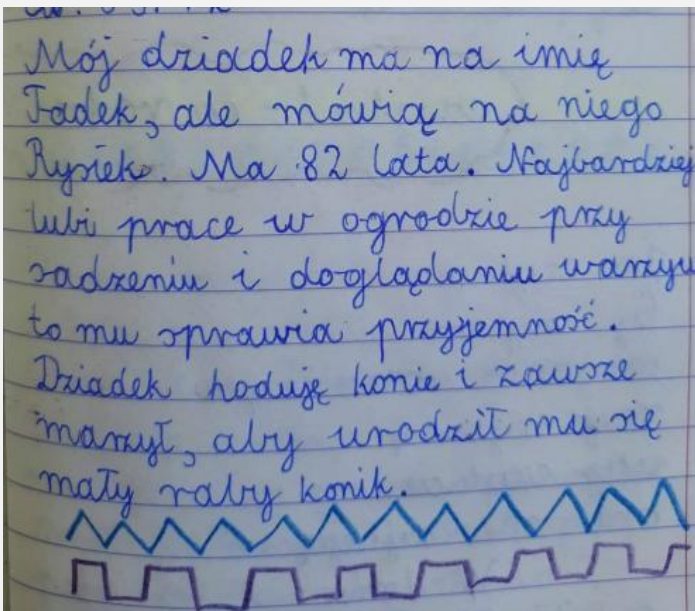 Mój dziadek ma na imię
Tadek, ale mówią na niego
Rysiek. Ma 82 lata. Najbardziej
lubi prace w ogrodzie przy
sadzeniu i doglądaniu warzyw
to mu sprawia przyjemność.
Dziadek hoduję konie i zawsze
marzył, aby urodził mu się
mały raby konik.